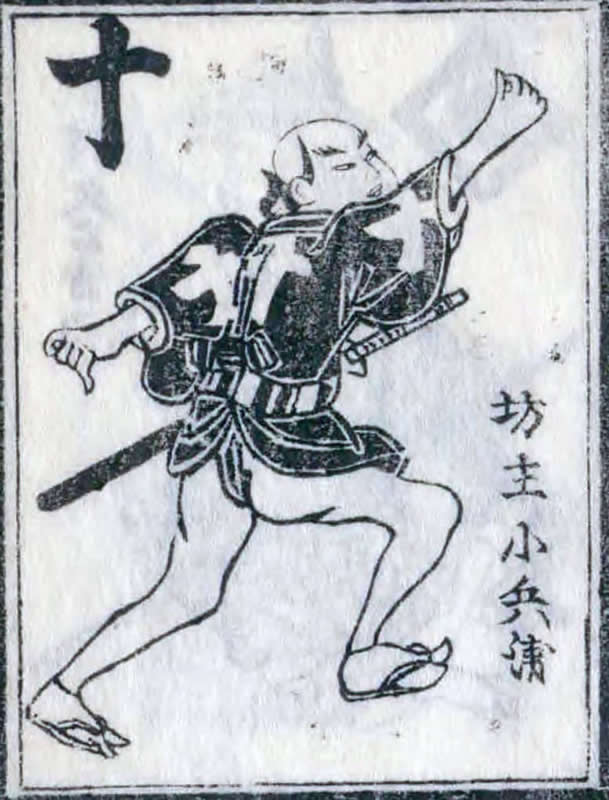 十
坊主小兵蒲